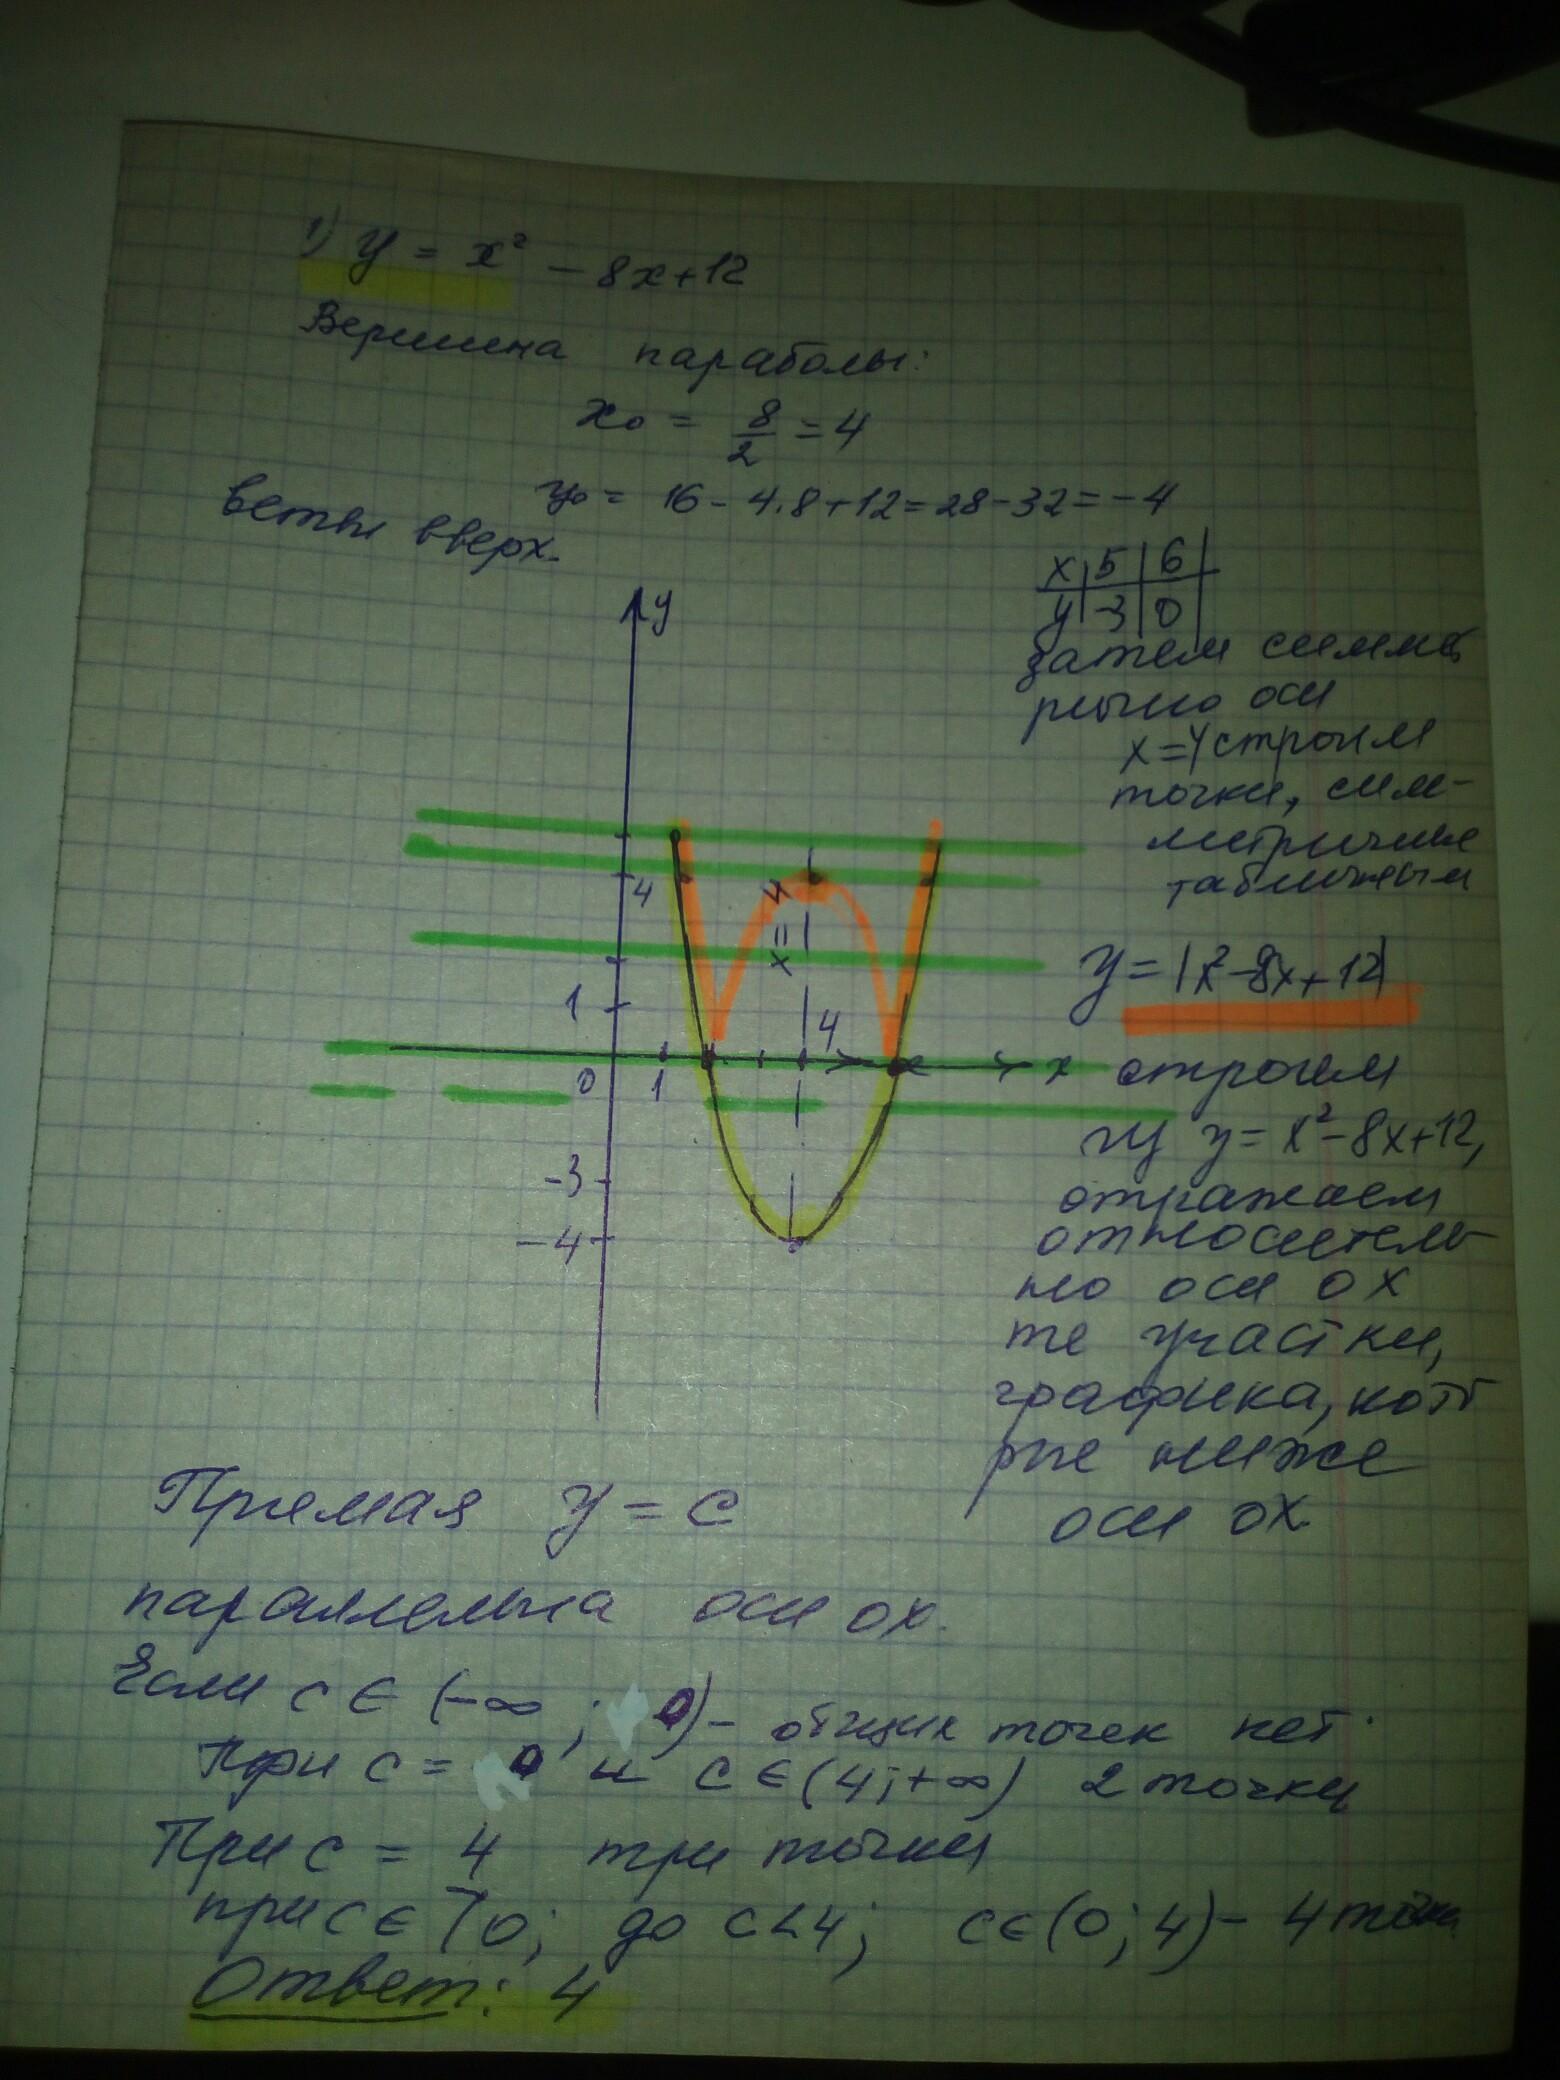 1) y = x² - 8x+12
Вершина параболы:
x₀ = 8/2 = 4
y₀ = 16 - 4.8+12=28-32=-4
ветви вверх.
x | 5 | 6
y | -3 | 0
затем симмет
рично оси
x=4 строим
точки, сим-
метричные
табличным
y
4
x=4
1
4
0
1
x
-3
-4
y = |x²-8x+12|
строим
гр y=x²-8x+12,
отражаем
относитель
но оси ОХ
те участки,
графика, кото
рые ниже
оси ОХ.
Прямая y = c
параллельна оси ОХ.
Если c ∈ (-∞; 0) - общих точек нет.
При c = 0 и c ∈ (4; +∞) 2 точки
При c = 4 три точки
при c ∈ >0; до c<4; c∈(0; 4) - 4 точки
Ответ: 4